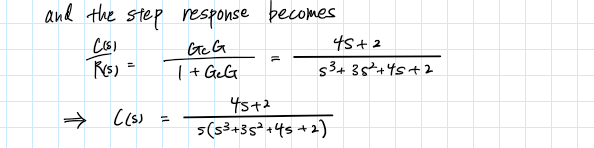 and the step response becomes
C(s)/R(s) = GcG/(1 + GcG) = (4s+2)/(s³+3s²+4s+2)
⇒ C(s) = (4s+2)/(s(s³+3s²+4s+2))